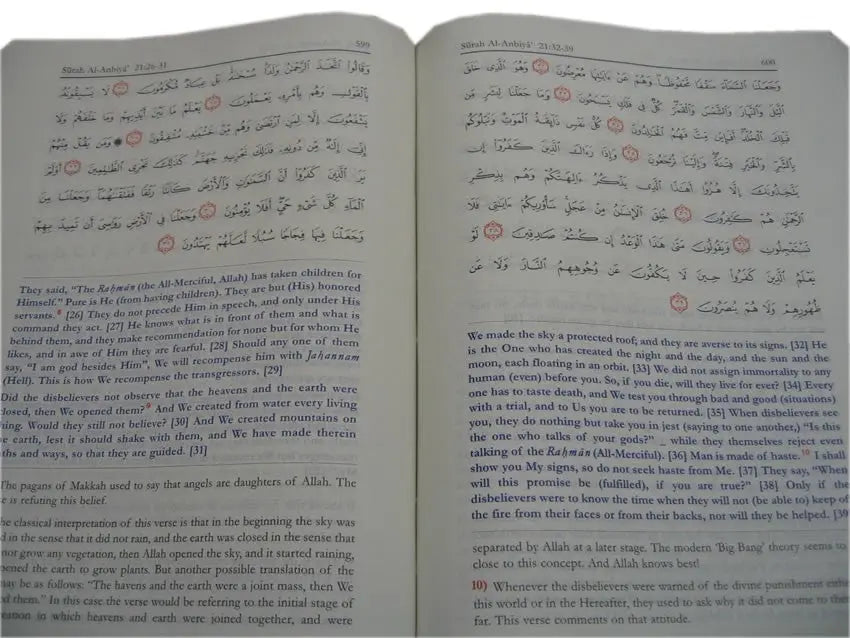 599
Sūrah Al-Anbiyā' 21:26-31
وَقَالُوا۟ ٱتَّخَذَ ٱلرَّحْمَٰنُ وَلَدًا سُبْحَٰنَهُۥ بَلْ عِبَادٌ مُّكْرَمُونَ ٢٦ لَا يَسْبِقُونَهُۥ
بِٱلْقَوْلِ وَهُم بِأَمْرِهِۦ يَعْمَلُونَ ٢٧ يَعْلَمُ مَا بَيْنَ أَيْدِيهِمْ وَمَا خَلْفَهُمْ وَلَا
يَشْفَعُونَ إِلَّا لِمَنِ ٱرْتَضَىٰ وَهُم مِّنْ خَشْيَتِهِۦ مُشْفِقُونَ ٢٨ وَمَن يَقُلْ مِنْهُمْ
إِنِّىٓ إِلَٰهٌ مِّن دُونِهِۦ فَذَٰلِكَ نَجْزِيهِ جَهَنَّمَ كَذَٰلِكَ نَجْزِى ٱلظَّٰلِمِينَ ٢٩ أَوَلَمْ
يَرَ ٱلَّذِينَ كَفَرُوٓا۟ أَنَّ ٱلسَّمَٰوَٰتِ وَٱلْأَرْضَ كَانَتَا رَتْقًا فَفَتَقْنَٰهُمَا وَجَعَلْنَا مِنَ
ٱلْمَآءِ كُلَّ شَىْءٍ حَىٍّ أَفَلَا يُؤْمِنُونَ ٣٠ وَجَعَلْنَا فِى ٱلْأَرْضِ رَوَٰسِىَ أَن تَمِيدَ بِهِمْ
وَجَعَلْنَا فِيهَا فِجَاجًا سُبُلًا لَّعَلَّهُمْ يَهْتَدُونَ ٣١
They said, "The Raḥmān (the All-Merciful, Allah) has taken children for
Himself." Pure is He (from having children). They are but (His) honored
servants.⁸ [26] They do not precede Him in speech, and only under His
command they act. [27] He knows what is in front of them and what is
behind them, and they make recommendation for none but for whom He
likes, and in awe of Him they are fearful. [28] Should any one of them
say, "I am god besides Him", We will recompense him with Jahannam
(Hell). This is how We recompense the transgressors. [29]
Did the disbelievers not observe that the heavens and the earth were
closed, then We opened them?⁹ And We created from water every living
hing. Would they still not believe? [30] And We created mountains on
e earth, lest it should shake with them, and We have made therein
ths and ways, so that they are guided. [31]
The pagans of Makkah used to say that angels are daughters of Allah. The
e is refuting this belief.
he classical interpretation of this verse is that in the beginning the sky was
d in the sense that it did not rain, and the earth was closed in the sense that
not grow any vegetation, then Allah opened the sky, and it started raining,
pened the earth to grow plants. But another possible translation of the
may be as follows: "The havens and the earth were a joint mass, then We
d them." In this case the verse would be referring to the initial stage of
eation in which heavens and earth were joined together, and were
Sūrah Al-Anbiyā' 21:32-39
600
وَجَعَلْنَا ٱلسَّمَآءَ سَقْفًا مَّحْفُوظًا وَهُمْ عَنْ ءَايَٰتِهَا مُعْرِضُونَ ٣٢ وَهُوَ ٱلَّذِى خَلَقَ
ٱلَّيْلَ وَٱلنَّهَارَ وَٱلشَّمْسَ وَٱلْقَمَرَ كُلٌّ فِى فَلَكٍ يَسْبَحُونَ ٣٣ وَمَا جَعَلْنَا لِبَشَرٍ مِّن
قَبْلِكَ ٱلْخُلْدَ أَفَإِي۟ن مِّتَّ فَهُمُ ٱلْخَٰلِدُونَ ٣٤ كُلُّ نَفْسٍ ذَآئِقَةُ ٱلْمَوْتِ وَنَبْلُوكُم
بِٱلشَّرِّ وَٱلْخَيْرِ فِتْنَةً وَإِلَيْنَا تُرْجَعُونَ ٣٥ وَإِذَا رَءَاكَ ٱلَّذِينَ كَفَرُوٓا۟ إِن
يَتَّخِذُونَكَ إِلَّا هُزُوًا أَهَٰذَا ٱلَّذِى يَذْكُرُ ءَالِهَتَكُمْ وَهُم بِذِكْرِ
ٱلرَّحْمَٰنِ هُمْ كَٰفِرُونَ ٣٦ خُلِقَ ٱلْإِنسَٰنُ مِنْ عَجَلٍ سَأُو۟رِيكُمْ ءَايَٰتِى فَلَا
تَسْتَعْجِلُونِ ٣٧ وَيَقُولُونَ مَتَىٰ هَٰذَا ٱلْوَعْدُ إِن كُنتُمْ صَٰدِقِينَ ٣٨ لَوْ
يَعْلَمُ ٱلَّذِينَ كَفَرُوا۟ حِينَ لَا يَكُفُّونَ عَن وُجُوهِهِمُ ٱلنَّارَ وَلَا عَن
ظُهُورِهِمْ وَلَا هُمْ يُنصَرُونَ ٣٩
We made the sky a protected roof; and they are averse to its signs. [32] He
is the One who has created the night and the day, and the sun and the
moon, each floating in an orbit. [33] We did not assign immortality to any
human (even) before you. So, if you die, will they live for ever? [34] Every
one has to taste death, and We test you through bad and good (situations)
with a trial, and to Us you are to be returned. [35] When disbelievers see
you, they do nothing but take you in jest (saying to one another,) "Is this
the one who talks of your gods?" _ while they themselves reject even
talking of the Raḥmān (All-Merciful). [36] Man is made of haste.¹⁰ I shall
show you My signs, so do not seek haste from Me. [37] They say, "When
will this promise be (fulfilled), if you are true?" [38] Only if the
disbelievers were to know the time when they will not (be able to) keep of
the fire from their faces or from their backs, nor will they be helped. [39
separated by Allah at a later stage. The modern 'Big Bang' theory seems to
close to this concept. And Allah knows best!
10) Whenever the disbelievers were warned of the divine punishment eithe
this world or in the Hereafter, they used to ask why it did not come to the
far. This verse comments on that attitude.